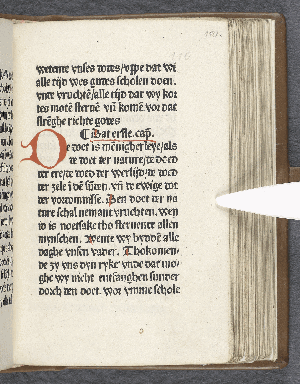 wetente vnses dodes/oppe dat wi
alle tijd wes gudes scholen doen.
vnde vruchtē/alle tijd dat wy kor
tes motē steruē vn̄ komē vor dat
strēghe richte godes
¶ Dat erste. cap̄.
De doet is mēnigher leye/als
de doet der nature/de doet
der ere/de doet der werlijd/de doet
der zele ī dē sūnen. vn̄ de ewige dot
der vordomnisse. Den doet der na
ture schal nemant vruchten. wen
id is noetsake tho steruende allen
mynschen. Wente wy bydden alle
daghe vnsen vader. Thokomen-
de zy vns dyn ryke vnde dat mo-
ghe wy nicht entfanghen sunder
dorch den doet. wor vmme schole